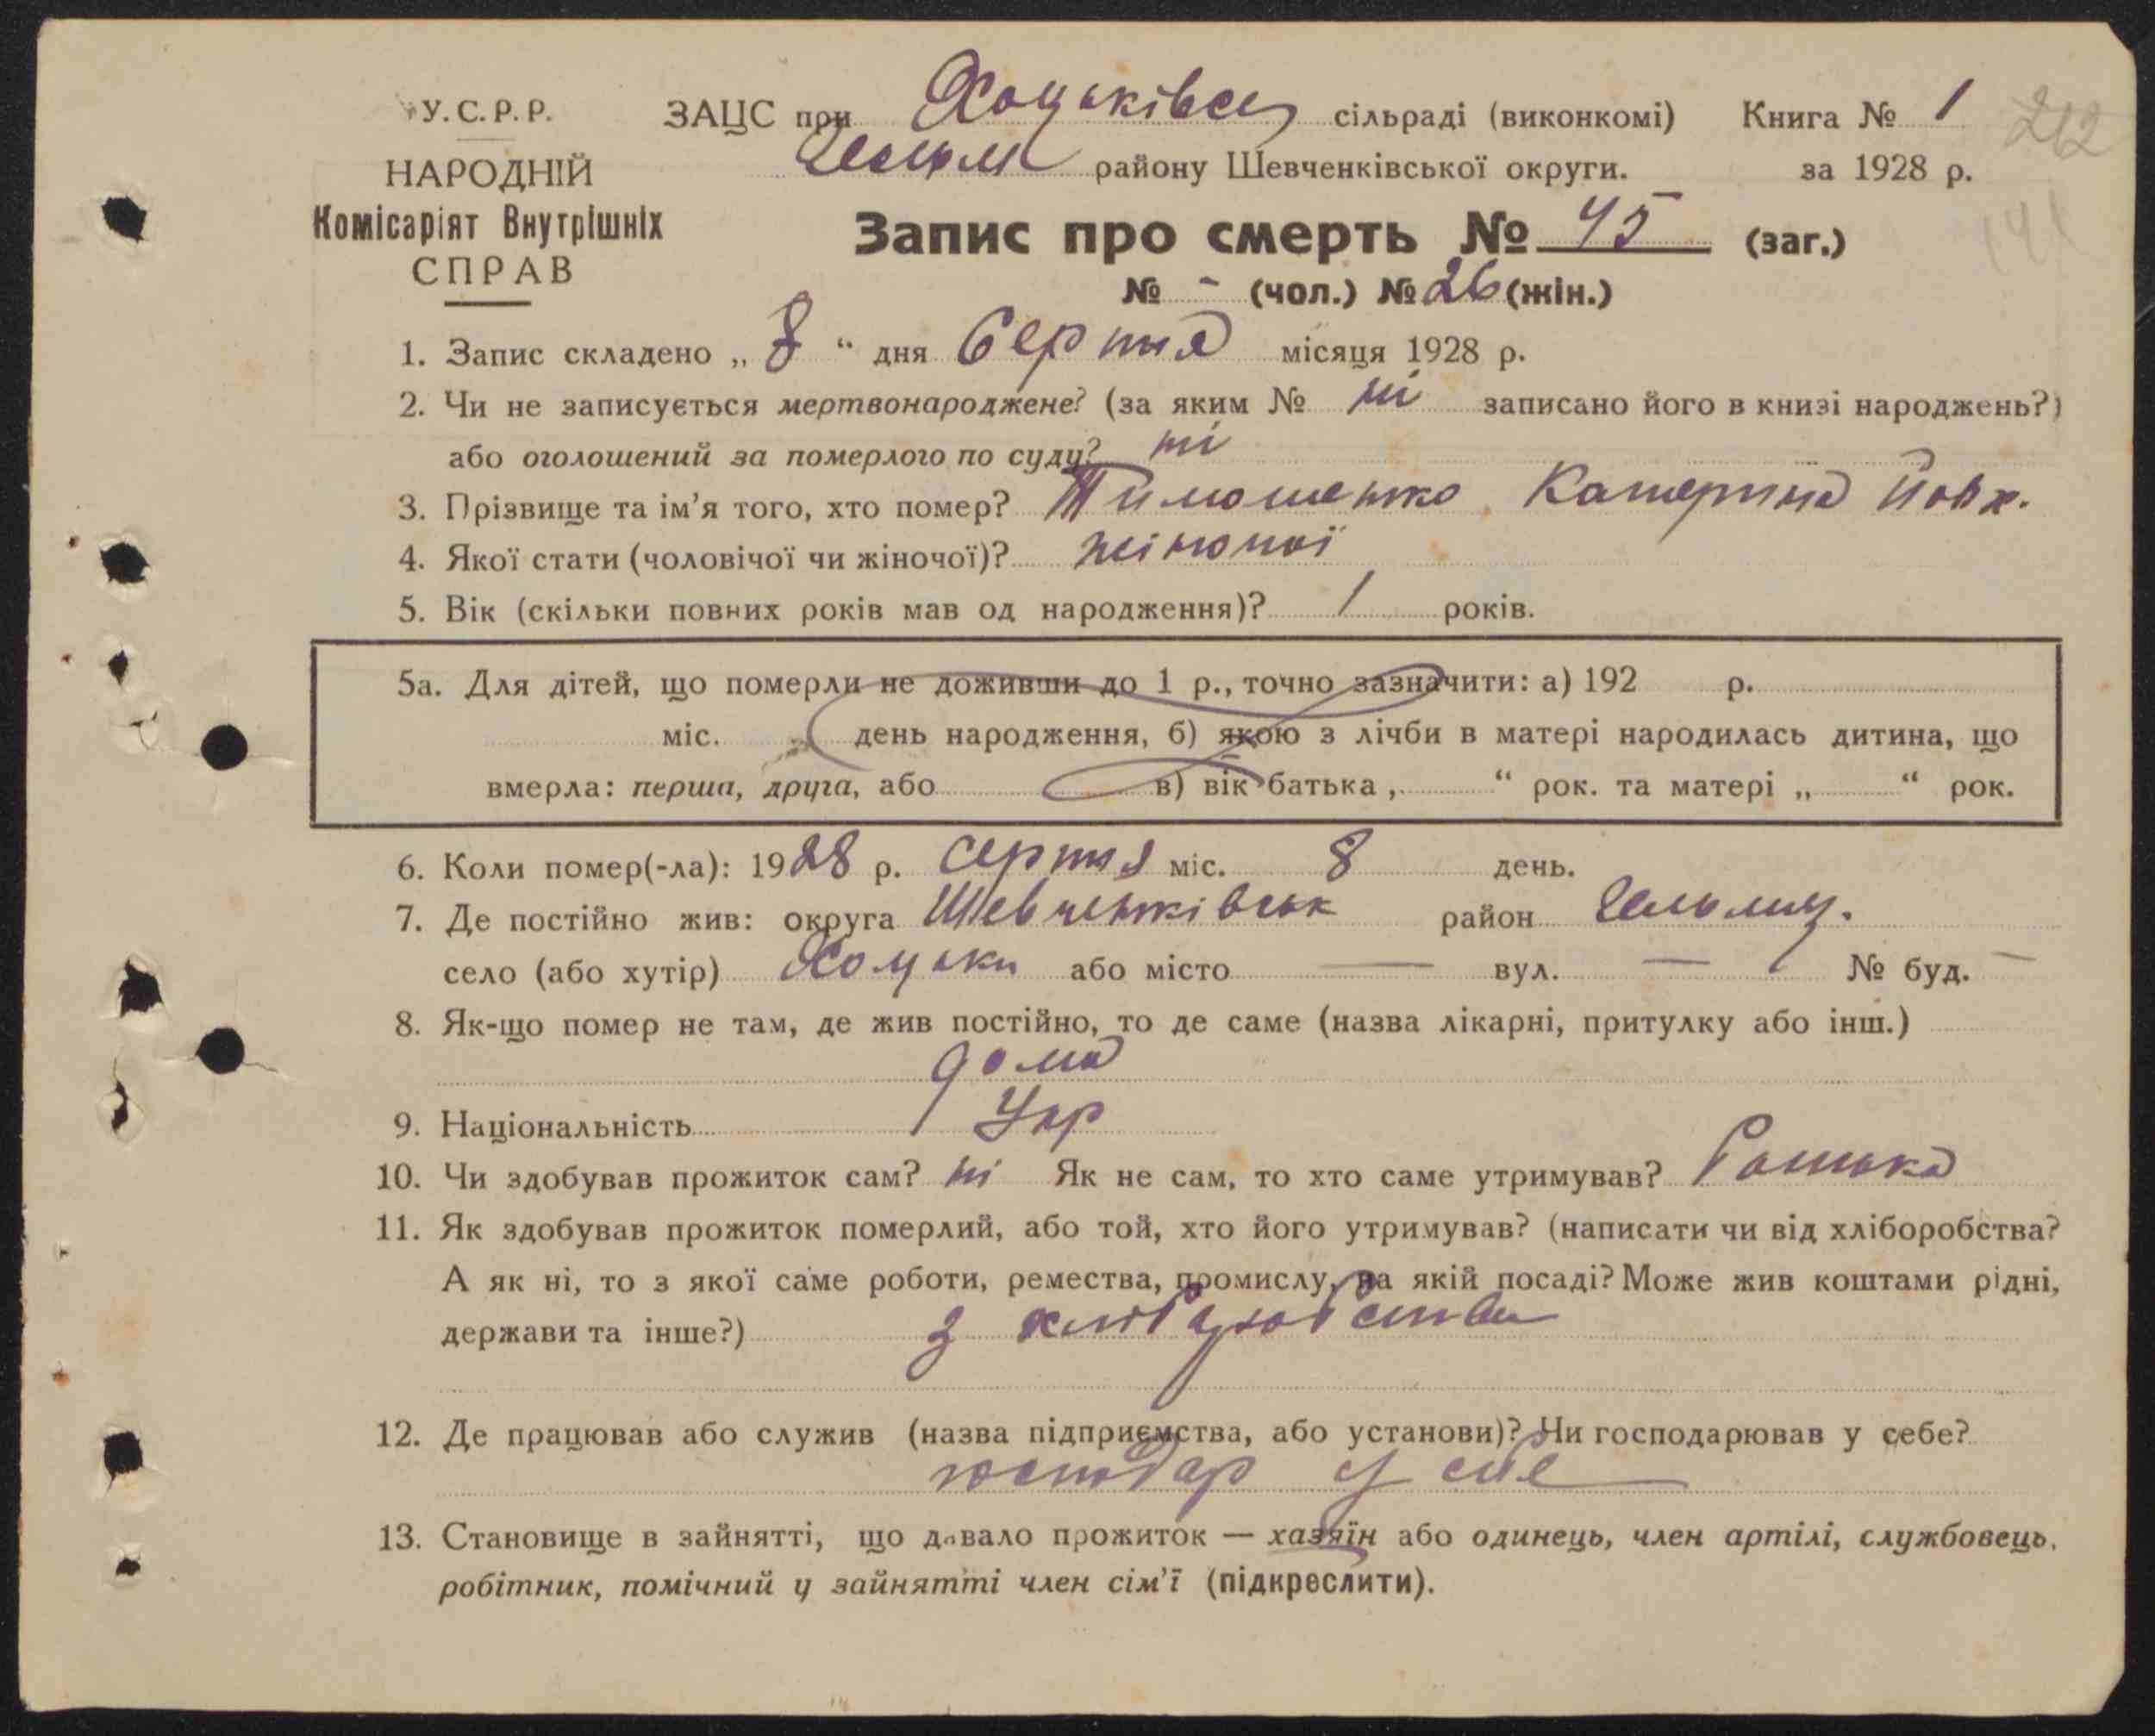 У.С.Р.Р. ЗАЦС при Хоцьківсц сільраді (виконкомі) Книга № 1 212
району Шевченківської округи. за 1928 р.
НАРОДНІЙ
Комісаріят Внутрішніх
СПРАВ
Запис про смерть № 45 (заг.) 141
№ - (чол.) № 26 (жін.)
1. Запис складено „ 8 “ дня Серпня місяця 1928 р.
2. Чи не записується мертвонароджене? (за яким № ні записано його в книзі народжень?)
або оголошений за померлого по суду? ні
3. Прізвище та ім’я того, хто помер? Тимошенко Катерина Йовх.
4. Якої стати (чоловічої чи жіночої)? жіночої
5. Вік (скільки повних років мав од народження)? 1 років.
5а. Для дітей, що померли не доживши до 1 р., точно зазначити: а) 192 р.
міс. день народження, б) якою з лічби в матері народилась дитина, що
вмерла: перша, друга, або в) вік батька , “ рок. та матері „ “ рок.
6. Коли помер(-ла): 1928 р. серпня міс. 8 день.
7. Де постійно жив: округа Шевченківськ район Гельмяз.
село (або хутір) Хоцьки або місто — вул. — № буд. —
8. Як-що помер не там, де жив постійно, то де саме (назва лікарні, притулку або інш.)
дома
9. Національність Укр
10. Чи здобував прожиток сам? ні Як не сам, то хто саме утримував? батько
11. Як здобував прожиток померлий, або той, хто його утримував? (написати чи від хліборобства?
А як ні, то з якої саме роботи, ремества, промислу, на якій посаді? Може жив коштами рідні,
держави та інше?) з хліборобства
12. Де працював або служив (назва підприємства, або установи)? Чи господарював у себе?
господар у себе
13. Становище в зайнятті, що давало прожиток — хазяїн або одинець, член артілі, службовець,
робітник, помічний у зайнятті член сім’ї (підкреслити).